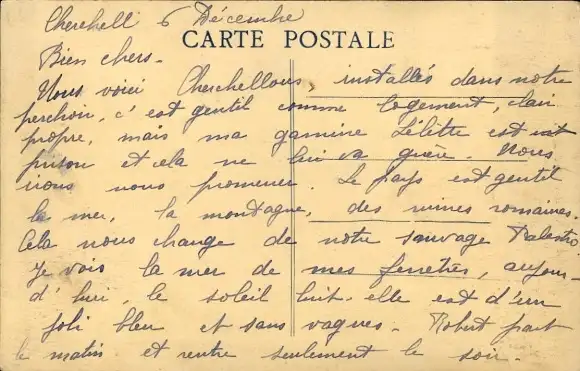 Cherchell 6 Décembre
CARTE POSTALE
Bien chers -
Nous voici Cherchellois, installés dans notre
perchoir, c'est gentil comme logement, clair
propre, mais ma gamine Lélette est en
prison et cela ne lui va guère. Nous
irons nous promener. Le pays est gentil
la mer, la montagne, des ruines romaines.
Cela nous change de notre sauvage Palestro.
Je vois la mer de mes fenêtres, aujour-
d'hui, le soleil luit - elle est d'un
joli bleu et sans vagues - Robert part
le matin et rentre seulement le soir -